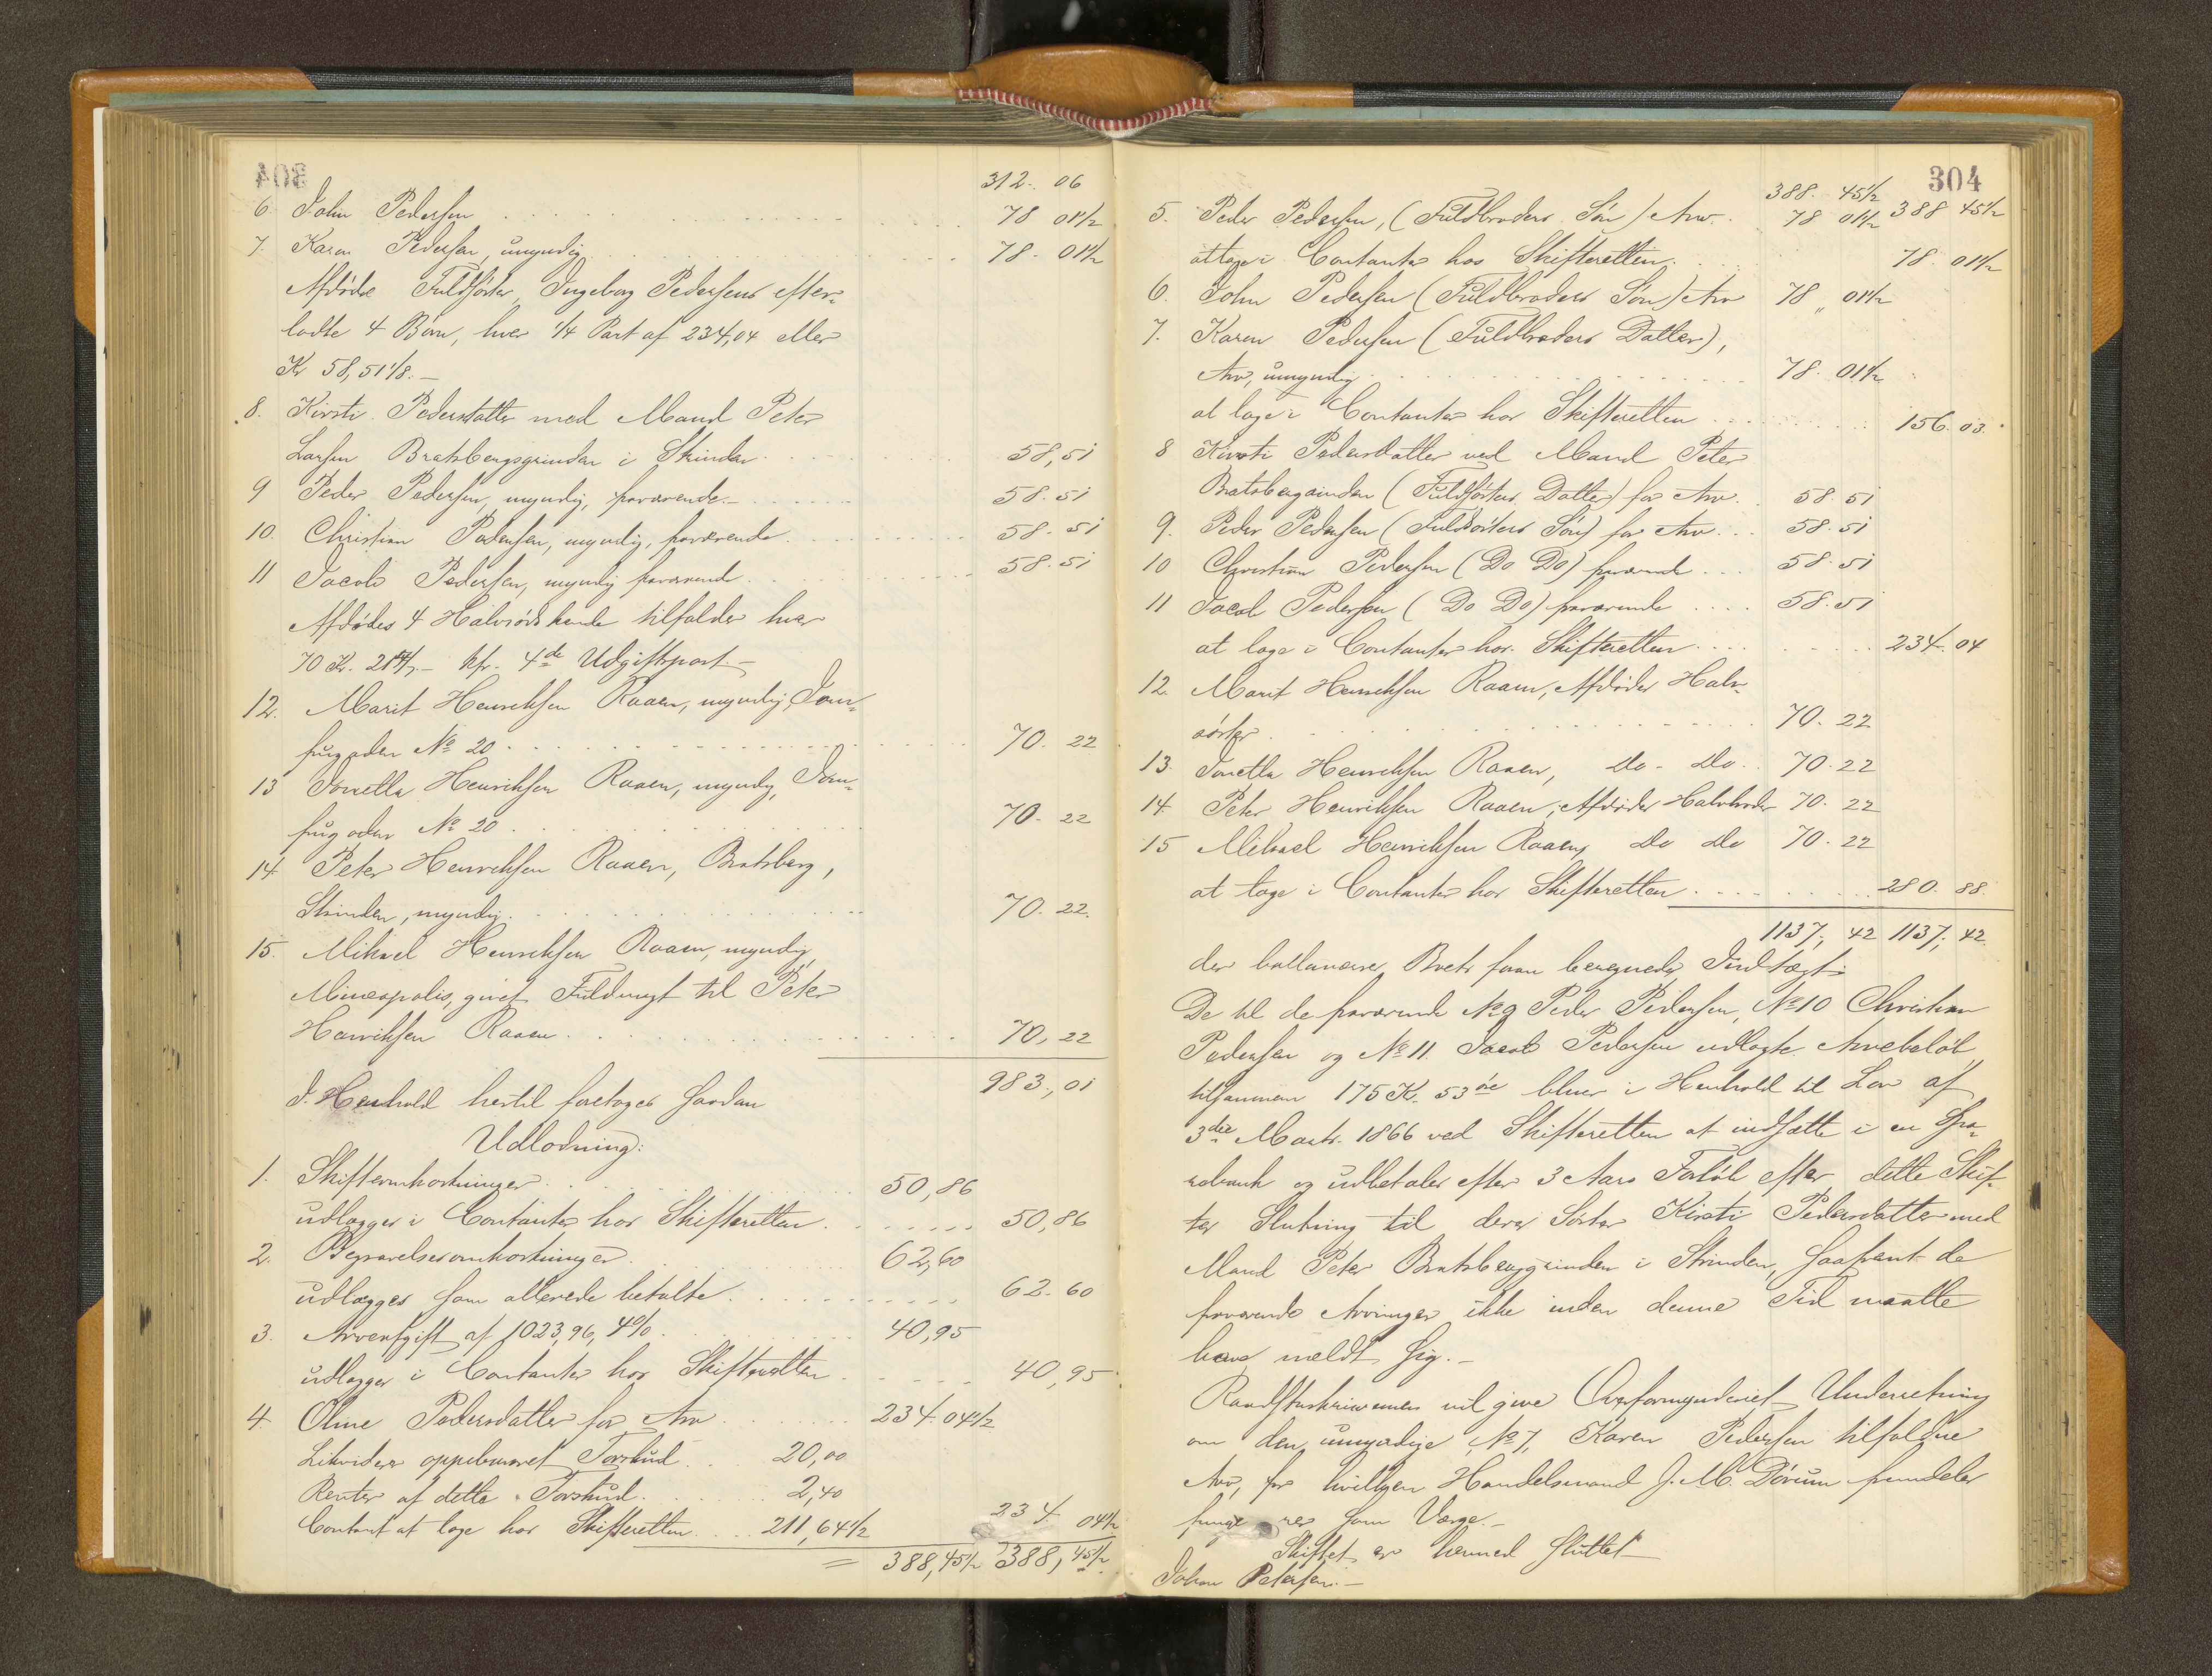 304
312. 06
6. John Pedersen 78 01 1/2
7. Karen Pedersen, umyndig 78. 01 1/2
Afdødes Fuldsøster Ingeborg Pedersens efter-
ladte 4 Børn, hver 1/4 Part af 234,04 eller
Kr 58,51 1/8.
8. Kirsti Pedersdatter med Mand Peter
Larsen Bratsbergsgrinden i Strinden 58,51
9 Peder Pedersen, myndig, fraværende 58.51
10. Christian Pedersen, myndig, fraværende 58.51
11 Jacob Pedersen, myndig fraværende 58.51
Afdødes 4 Halvsødskende tilfalder hver
70 Kr. 21 kfr. 4de Udgiftspost
12. Marit Henriksen Raaen, myndig, Jom-
frugaden No 20 70. 22
13 Jonetta Henriksen Raaen, myndig, Jom-
frugaden No 20 70. 22
14 Peter Henriksen Raaen, Bratsberg,
Strinden, myndig 70. 22.
15. Mikael Henriksen Raaen, myndig,
Mineapolis, givet Fuldmagt til Peter
Henriksen Raaen 70, 22
983, 01
I Henhold hertil foretages saadan
Udlodning:
1. Skifteomkostninger 50,86
udlægges i Contanter hos Skifteretten 50,86
2. Begravelsesomkostninger 62,60
udlægges som allerede betalte 62.60
3. Arveafgift af 1023,96, 4% 40,95
udlægges i Contanter hos Skifteretten 40,95
4. Oline Pedersdatter for Arv 234.04 1/2
Likvideres oppebaaret Forskud 20,00
Renter af dette Forskud 2,40
Contant at tage hos Skifteretten 211,64 1/2 234 04 1/2
= 388,45 1/2 388,45 1/2
304
388. 45 1/2 388 45 1/2
5. Peder Pedersen, (Fuldbroders Søn) Arv 78 01 1/2
at tage i Contanter hos Skifteretten 78. 01 1/2
6. John Pedersen (Fuldbroders Søn) Arv 78 " 01 1/2
7. Karen Pedersen (Fuldbroders Datter),
Arv, umyndig 78. 01 1/2
at tage i Contanter hos Skifteretten 156. 03.
8 Kirsti Pedersdatter ved Mand Peter
Bratsberggrinden (Fuldsøsters Datter) for Arv 58.51
9. Peder Pedersen (Fuldsøsters Søn) for Arv 58.51
10 Christian Pedersen (Do Do) fraværende 58.51
11 Jacob Pedersen (Do Do) fraværende 58.51
at tage i Contanter hos Skifteretten 234.04
12. Marit Henriksen Raaen, Afdødes Halv-
søster 70. 22
13. Jonetta Henriksen Raaen, Do- Do 70.22
14. Peter Henriksen Raaen, Afdødes Halvbroder 70. 22
15 Mikael Henriksen Raaen, Do Do 70. 22
at tage i Contanter hos Skifteretten 280. 88.
1137, 42 1137, 42
der ballancerer Boets foran beregnede Indtægt.
De til de fraværende No 9 Peder Pedersen, No 10 Christian
Pedersen og No 11. Jacob Pedersen udlagte Arvebeløb,
tilsammen 175 Kr. 53 øre bliver i Henhold til Lov af
3die Marts 1866 ved Skifteretten at indsætte i en Spa-
rebank og udbetales efter 3 Aars Forløb efter dette Skif-
tes Slutning til deres Søster Kirsti Pedersdatter med
Mand Peter Bratsberggrinden i Strinden, saafremt de
fraværende Arvinger ikke inden denne Tid maatte
have meldt sig.
Raadstueskriveren vil give Overformynderiet Underretning
om den umyndige No 7, Karen Pedersen tilfaldne
Arv, for hvilken Handelsmand J. M. Dørum fremdeles
fungerer som Værge.
Skiftet er hermed sluttet
Johan Petersen.